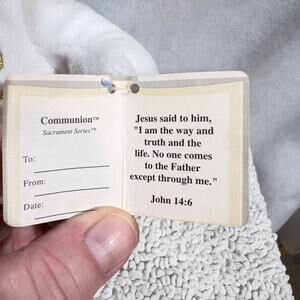 Communion™
Sacrament Series™
To:
From:
Date:
Jesus said to him,
"I am the way and
truth and the
life. No one comes
to the Father
except through me."
John 14:6